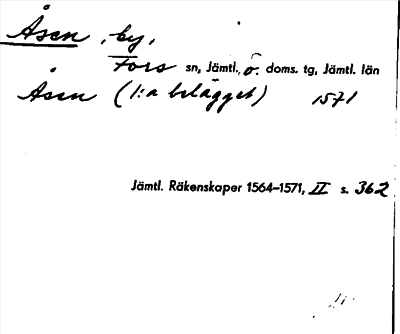 Åsen, by,
Fors sn, Jämtl. ö. doms. tg, Jämtl. län
Åsen (1:a belägget) 1571
Jämtl. Räkenskaper 1564–1571, II s. 362